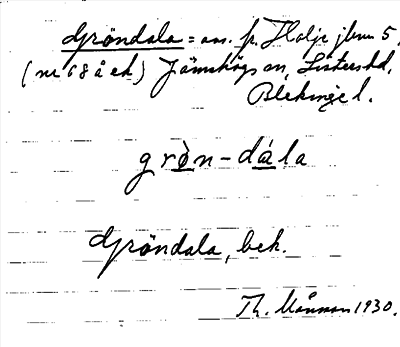 Gröndala = as. fr. Holje jbnr 5,
(nr 68 å ek) Jämshögs sn, Listers hd,
Blekinge l.
grò̲n-dá̲la
Gröndala, beh.
Th. Månsson 1930.